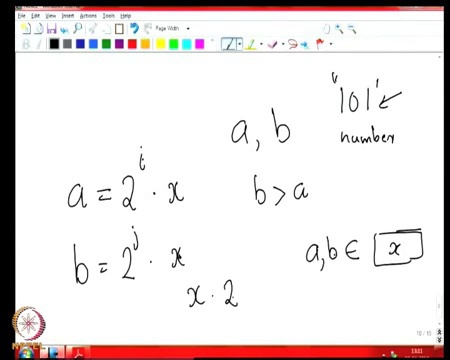 File Edit View Insert Actions Tools Help
Page Width
"101"
number
a, b
a = 2^i · x
b > a
b = 2^j · x
a,b ∈ x
x · 2